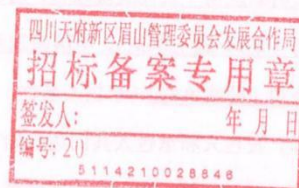 四川天府新区眉山管理委员会发展合作局
招标备案专用章
签发人: 年 月 日
编号: 20
5114210028846